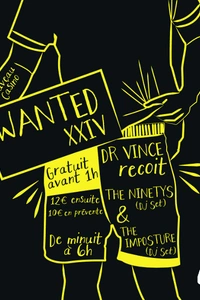 Nouveau
Casino
WANTED
XXIV
Gratuit
avant 1h
12€ ensuite
10€ en prévente
De minuit
à 6h
DR VINCE
recoit
THE NINETYS
(Dj Set)
&
THE
IMPOSTURE
(Dj Set)